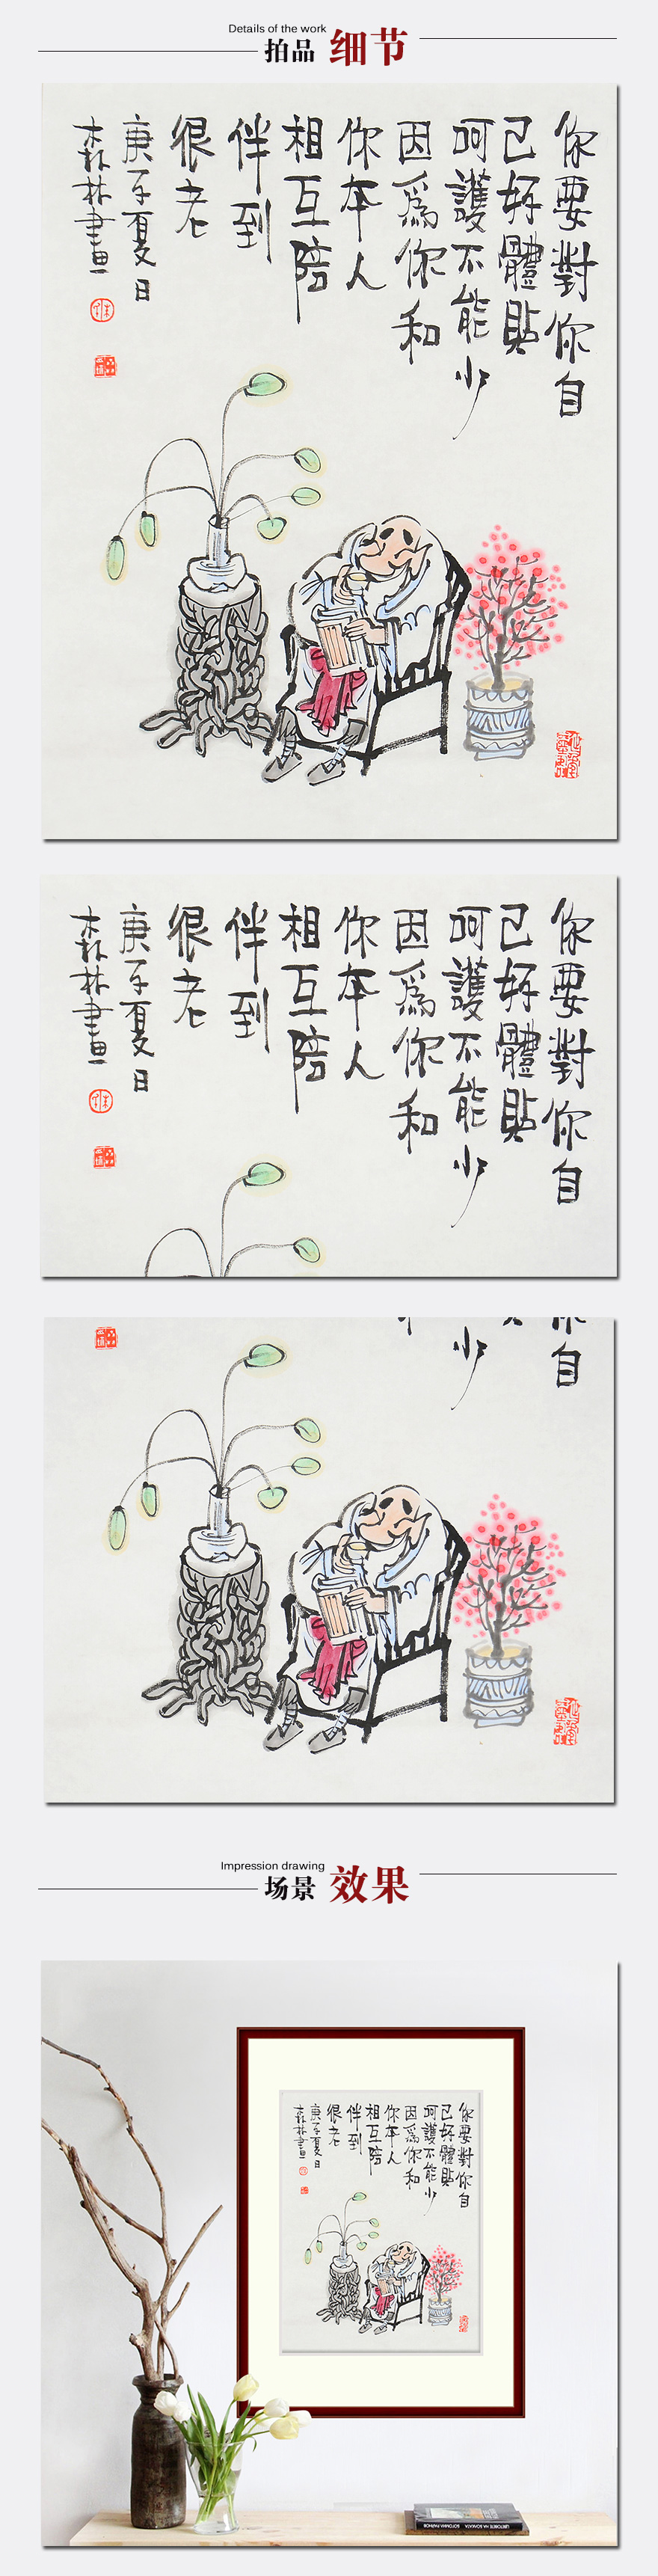 Details of the work
拍品 细节
你要對你自
己好體貼
呵護不能少
因爲你和
你本人
相互陪
伴到
很老
庚子夏日
森林畫
你要對你自
己好體貼
呵護不能少
因爲你和
你本人
相互陪
伴到
很老
庚子夏日
森林畫
自
少
Impression drawing
场景 效果
你要對你自
己好體貼
呵護不能少
因爲你和
你本人
相互陪
伴到
很老
庚子夏日
森林畫